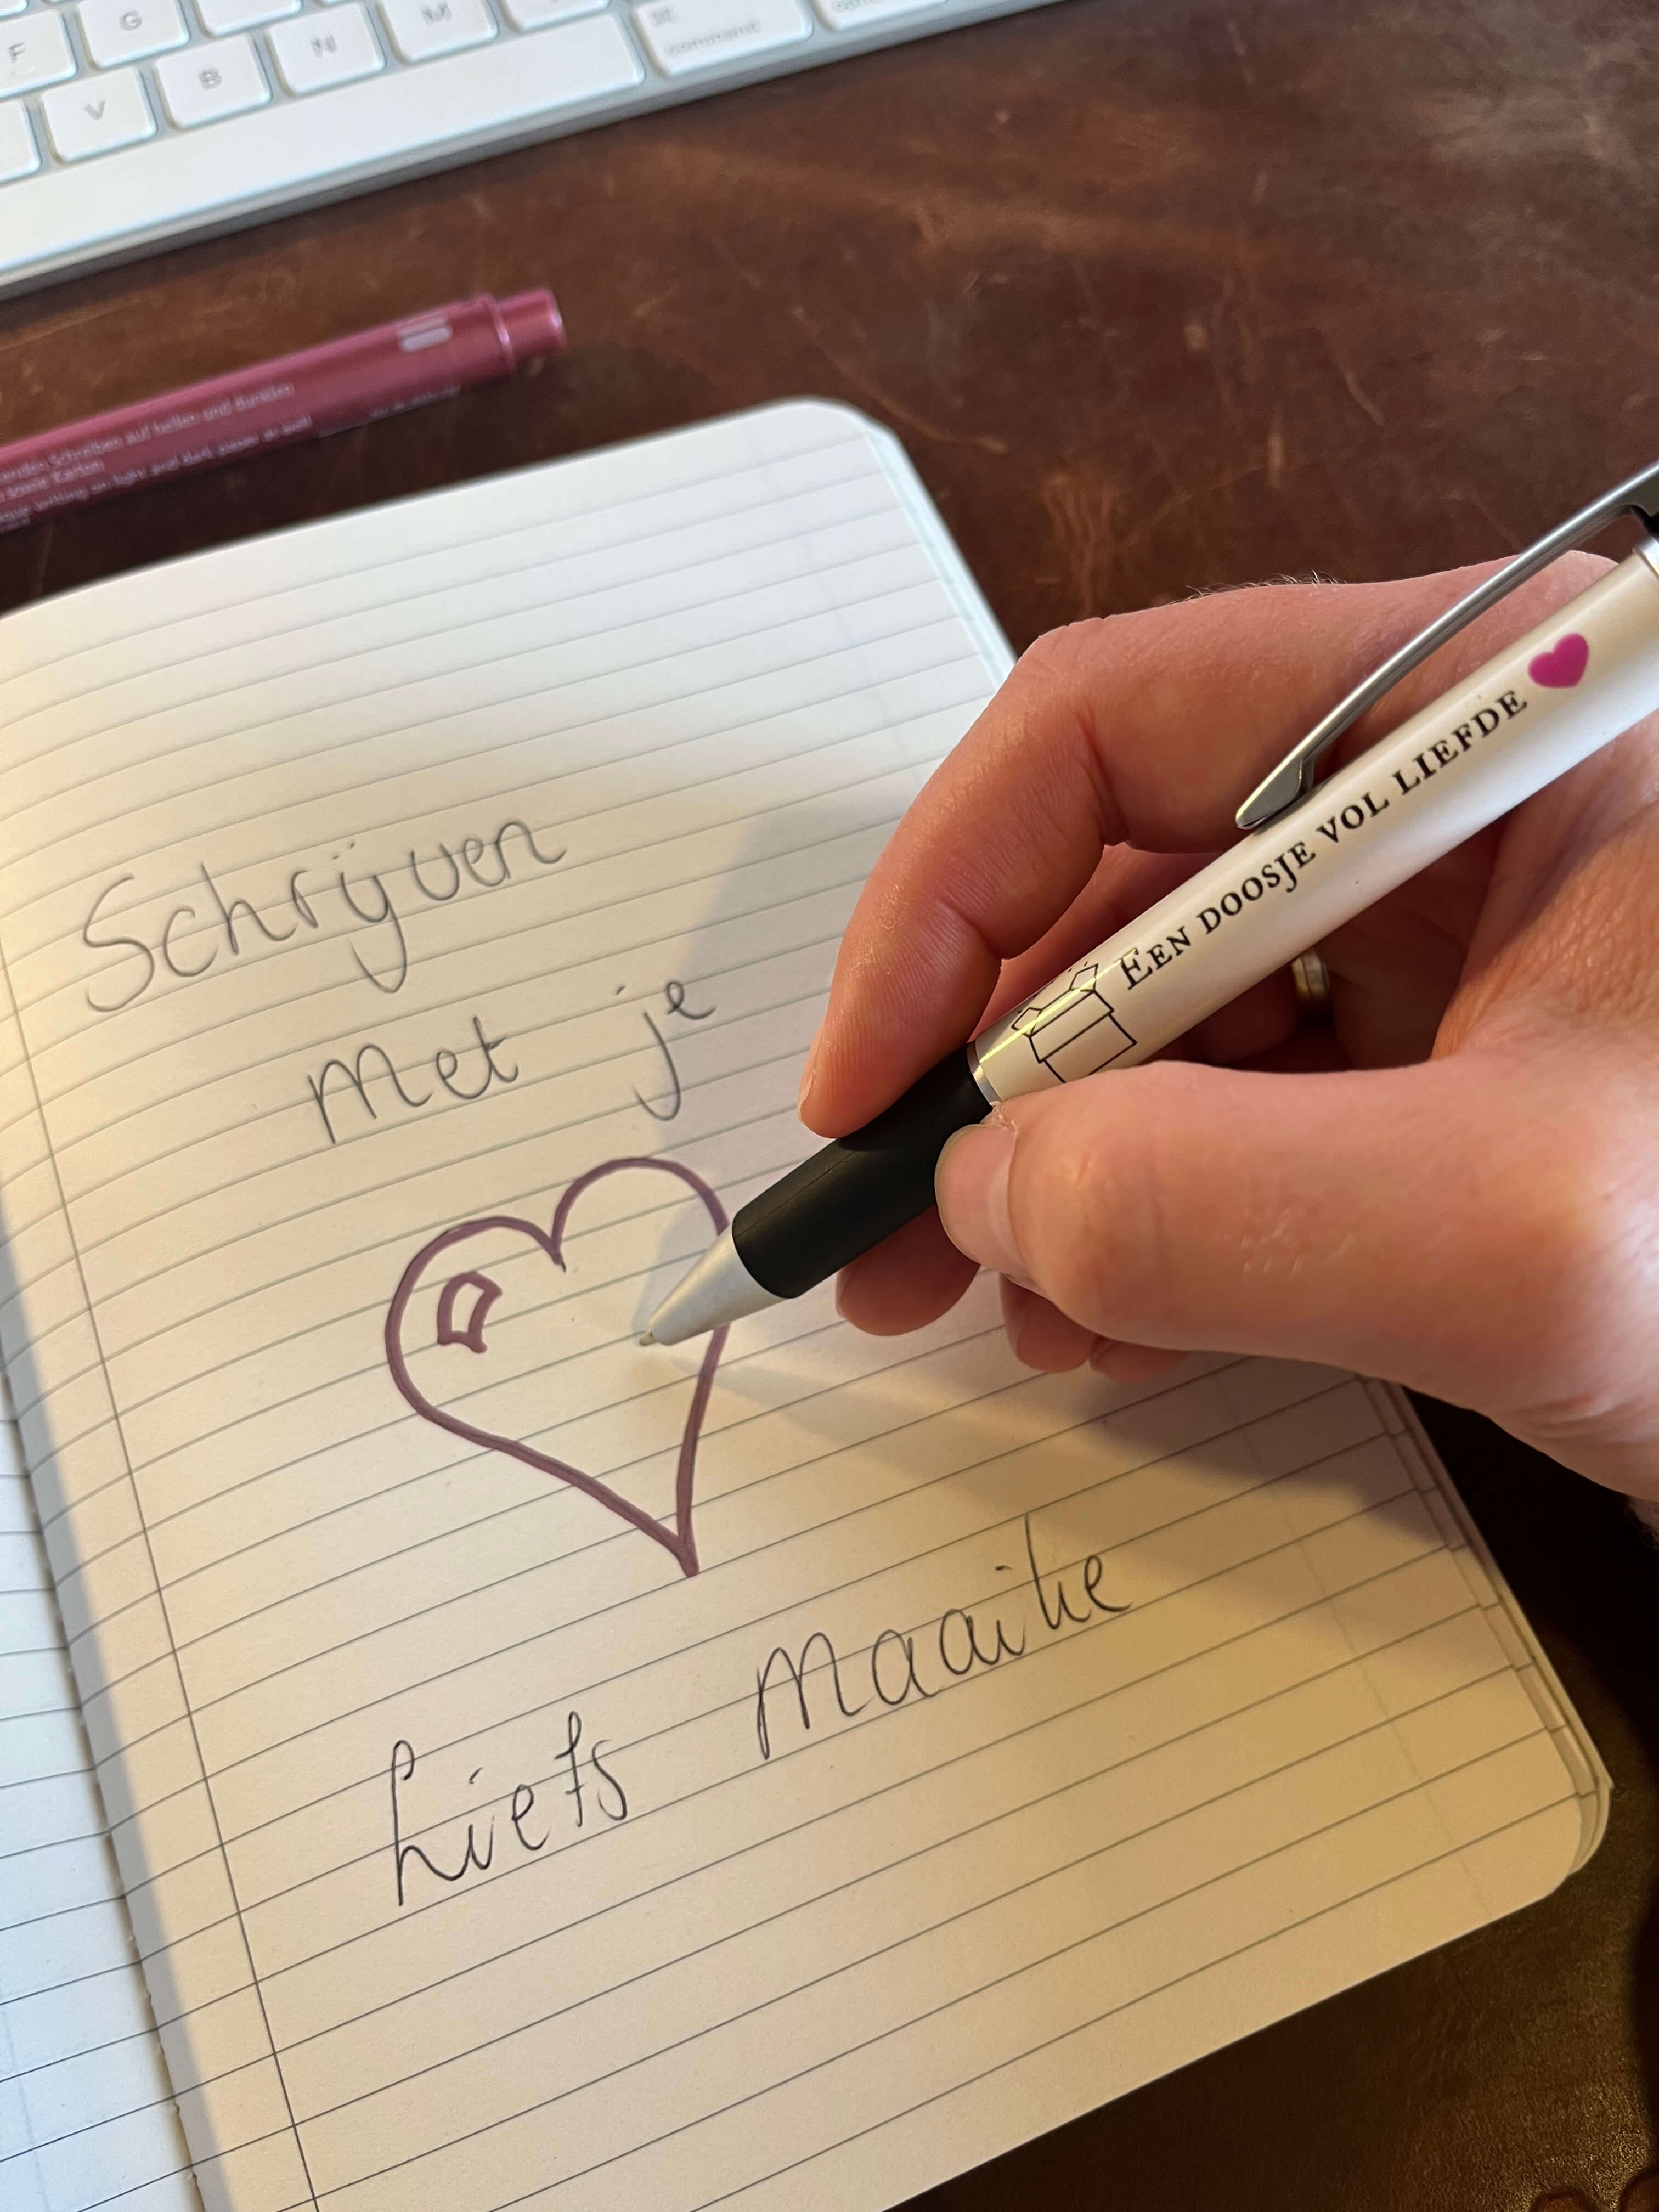 F
G
M
command
V
B
N
Schreiben auf hellen und dunklen
sowie Karton
writing on light and dark paper as well
EEN DOOSJE VOL LIEFDE
Schrijven
Met je
Liefs Maaike